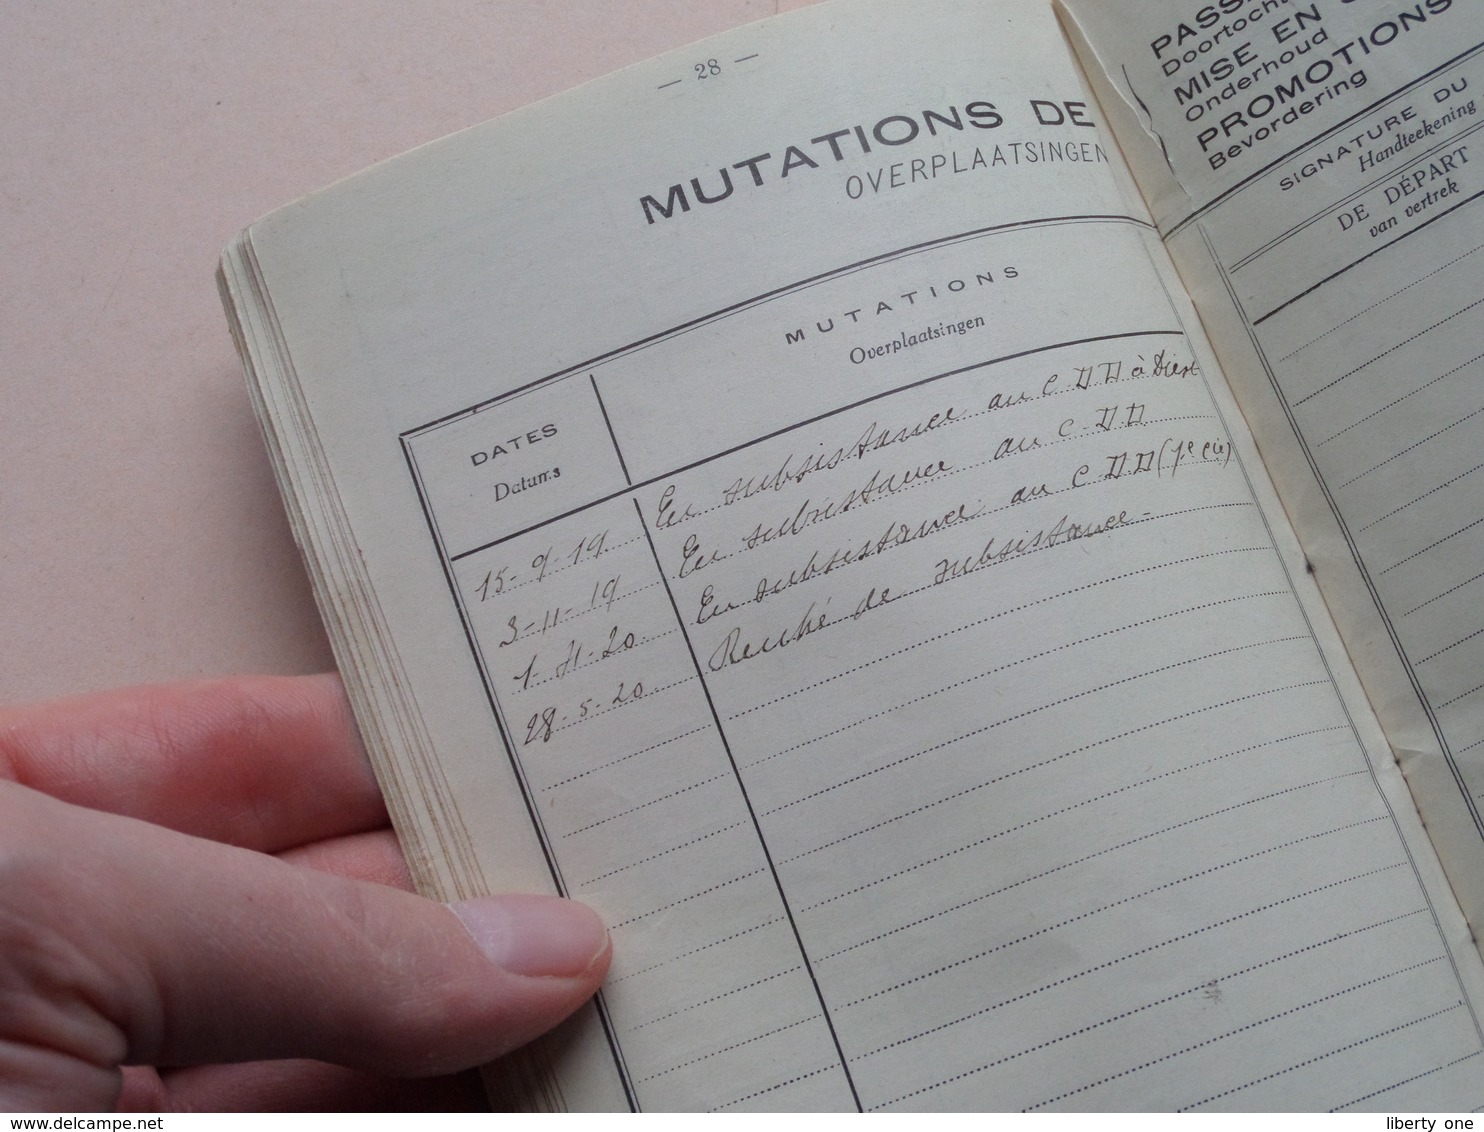 — 28 —
MUTATIONS DE
OVERPLAATSINGEN
DATES
Datums
MUTATIONS
Overplaatsingen
15-9-19 En subsistance au C.D.D à Diest
3-11-19 En subsistance au C.D.D
1-11-20 En subsistance au C D.D (1e Cie)
28-5-20 Rentré de subsistance -
Doortocht
MISE EN
Onderhoud
PROMOTIONS
Bevordering
SIGNATURE DU
Handteekening
DE DÉPART
van vertrek
www.delcampe.net
liberty one